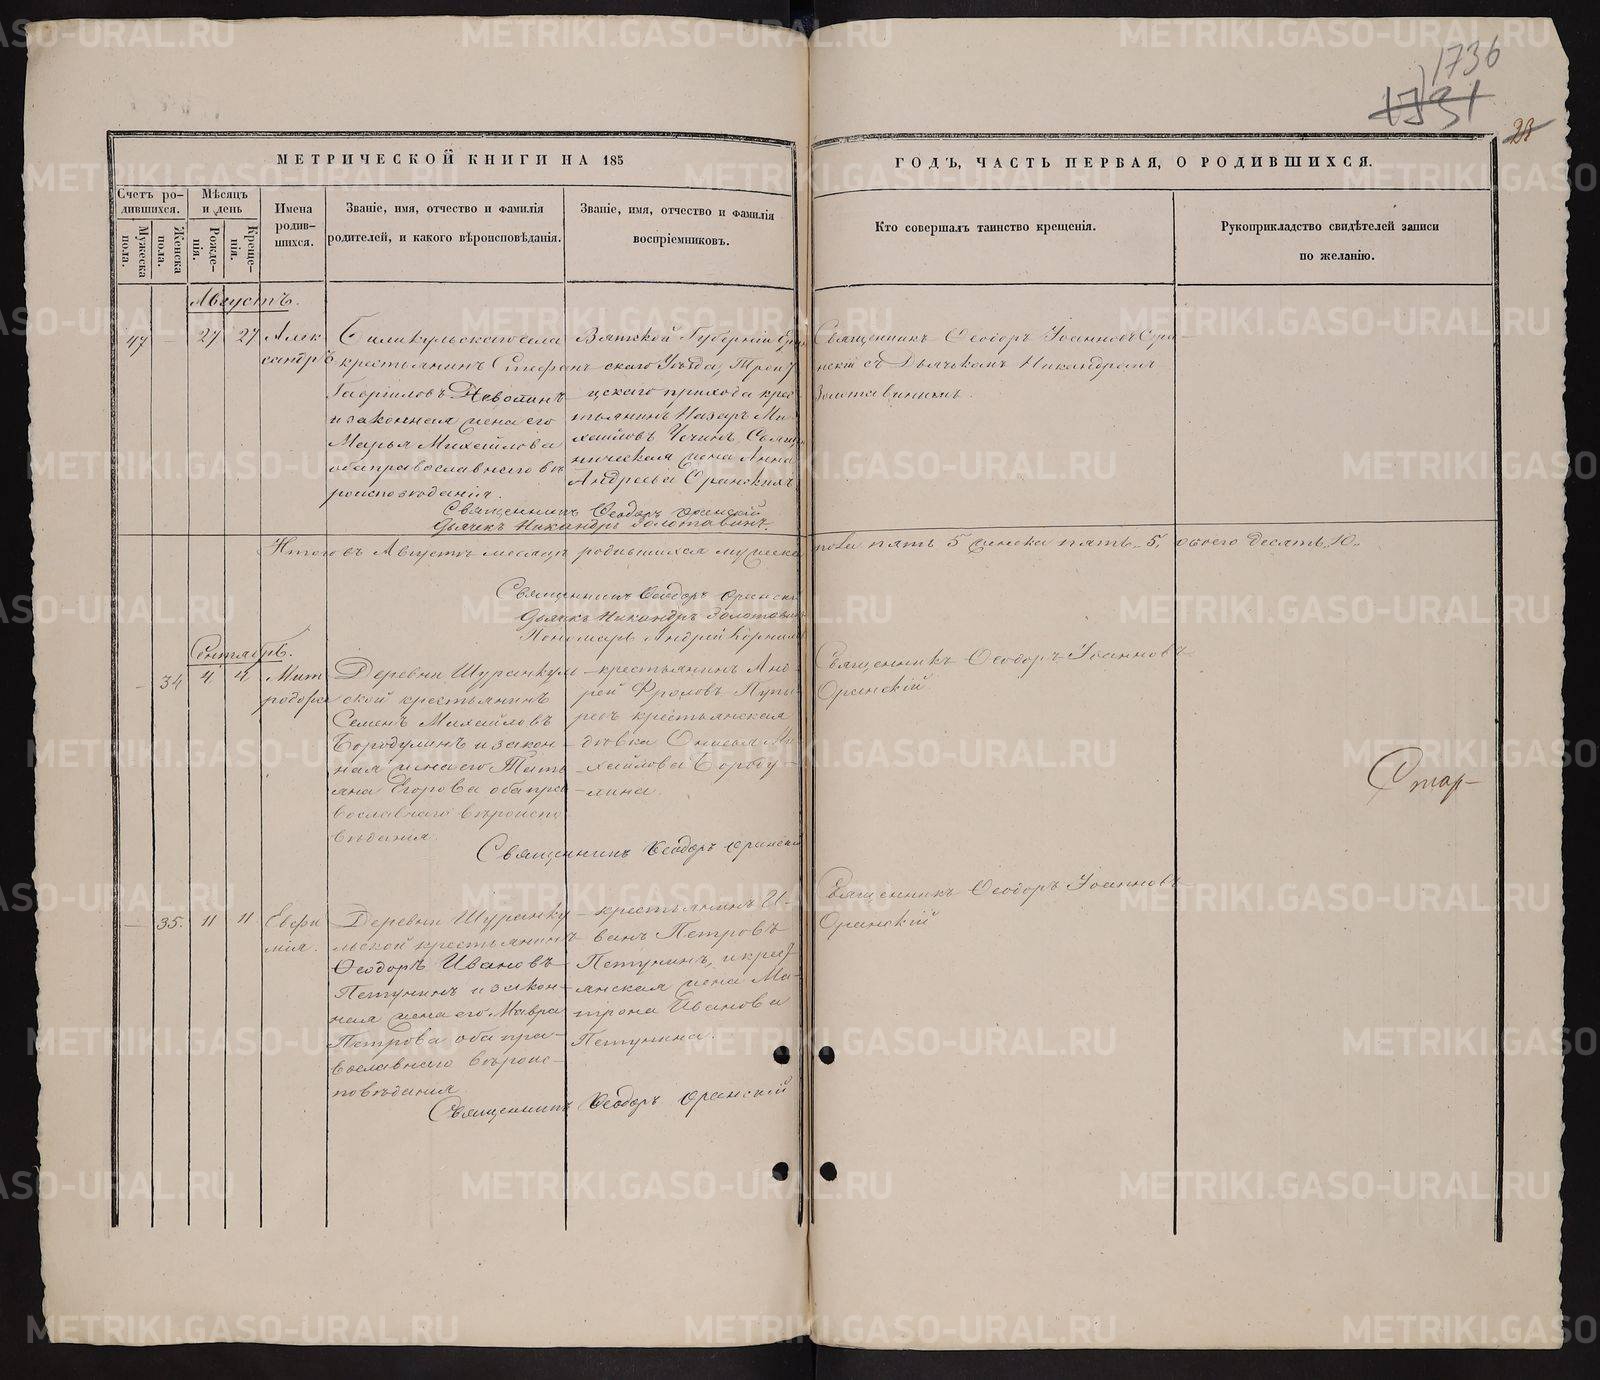 1736
1731
28
МЕТРИЧЕСКОЙ КНИГИ НА 185
ГОДЪ, ЧАСТЬ ПЕРВАЯ, О РОДИВШИХСЯ.
Счетъ ро-
дившихся.
Мужеска
пола.
Женска
пола.
Мѣсяцъ
и день
Рожде-
нія.
Креще-
нія.
Имена
родив-
шихся.
Званіе, имя, отчество и фамилія
родителей, и какого вѣроисповѣданія.
Званіе, имя, отчество и фамилія
воспріемниковъ.
Кто совершалъ таинство крещенія.
Рукоприкладство свидѣтелей записи
по желанію.
Августъ.
47 — 27 27
Алек
сандръ
села
крестьянинъ Стефанъ
Гавриловъ Неволинъ
и законная жена его
Марья Михайлова
оба православнаго вѣ
роисповѣданія.
Вятской Губерніи
скаго Уѣзда, Трои
цкаго прихода крес
тьянинъ Назаръ Ми
хайловъ Чечинъ, Свящ
енническая жена Анна
Андреева Оранская
Священникъ Ѳеодоръ Іоанновъ Ора
нскій съ Дьячкомъ Никандромъ
Золотавинымъ.
Священникъ Ѳеодоръ Оранскій
Дьячекъ Никандръ Золотавинъ
Итого въ Августѣ мѣсяцѣ родившихся мужеска пола пять 5 женска пять 5, обоего десять, 10.
Священникъ Ѳеодоръ Оранскі
Дьячекъ Никандръ Золотавинъ
Пономарь Андрей Корнило
Сентябрь.
— 34 4 4
Мит
родора
Деревни Шуранкуль
ской крестьянинъ
Семенъ Михайловъ
Бородулинъ и закон
ная жена его Тать
яна Егорова оба пра
вославнаго вѣроиспо
вѣданія
крестьянинъ Анд
рей Фроловъ
крестьянская
дѣвка Онисья Ми
хайлова Бороду
лина.
Священникъ Ѳеодоръ Іоанновъ
Оранскій
Стар-
Священникъ Ѳеодоръ Оранскій
— 35. 11 11
Евфи
мія.
Деревни Шуранку
льской крестьянинъ
Ѳеодоръ Ивановъ
Петунинъ и закон-
ная жена его Мавра
Петрова оба пра-
вославнаго вѣроис-
повѣданія
крестьянинъ И-
ванъ Петровъ
Петунинъ, и крес
янская жена Ма-
трона Иванова
Петунина.
Священникъ Ѳеодоръ Іоанновъ
Оранскій
Священникъ Ѳеодоръ Оранскій
METRIKI.GASO-URAL.RU